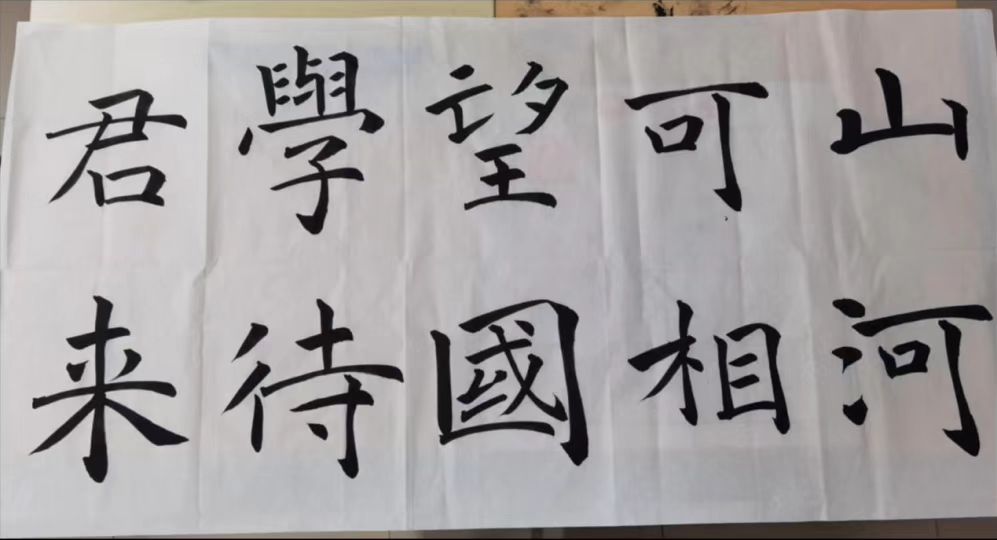 山河
可相
望國
學待
君来